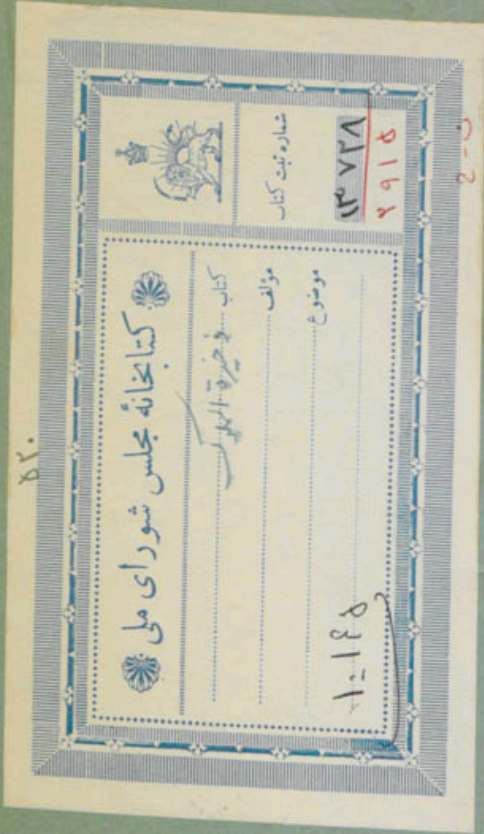 ۵۲۰
کتابخانهٔ مجلس شورای ملی
کتاب ذخیرة الملوک
مؤلف
موضوع
۱-۱۶۵
شماره ثبت کتاب
۱۳۷۲۸
۲۹۱۵